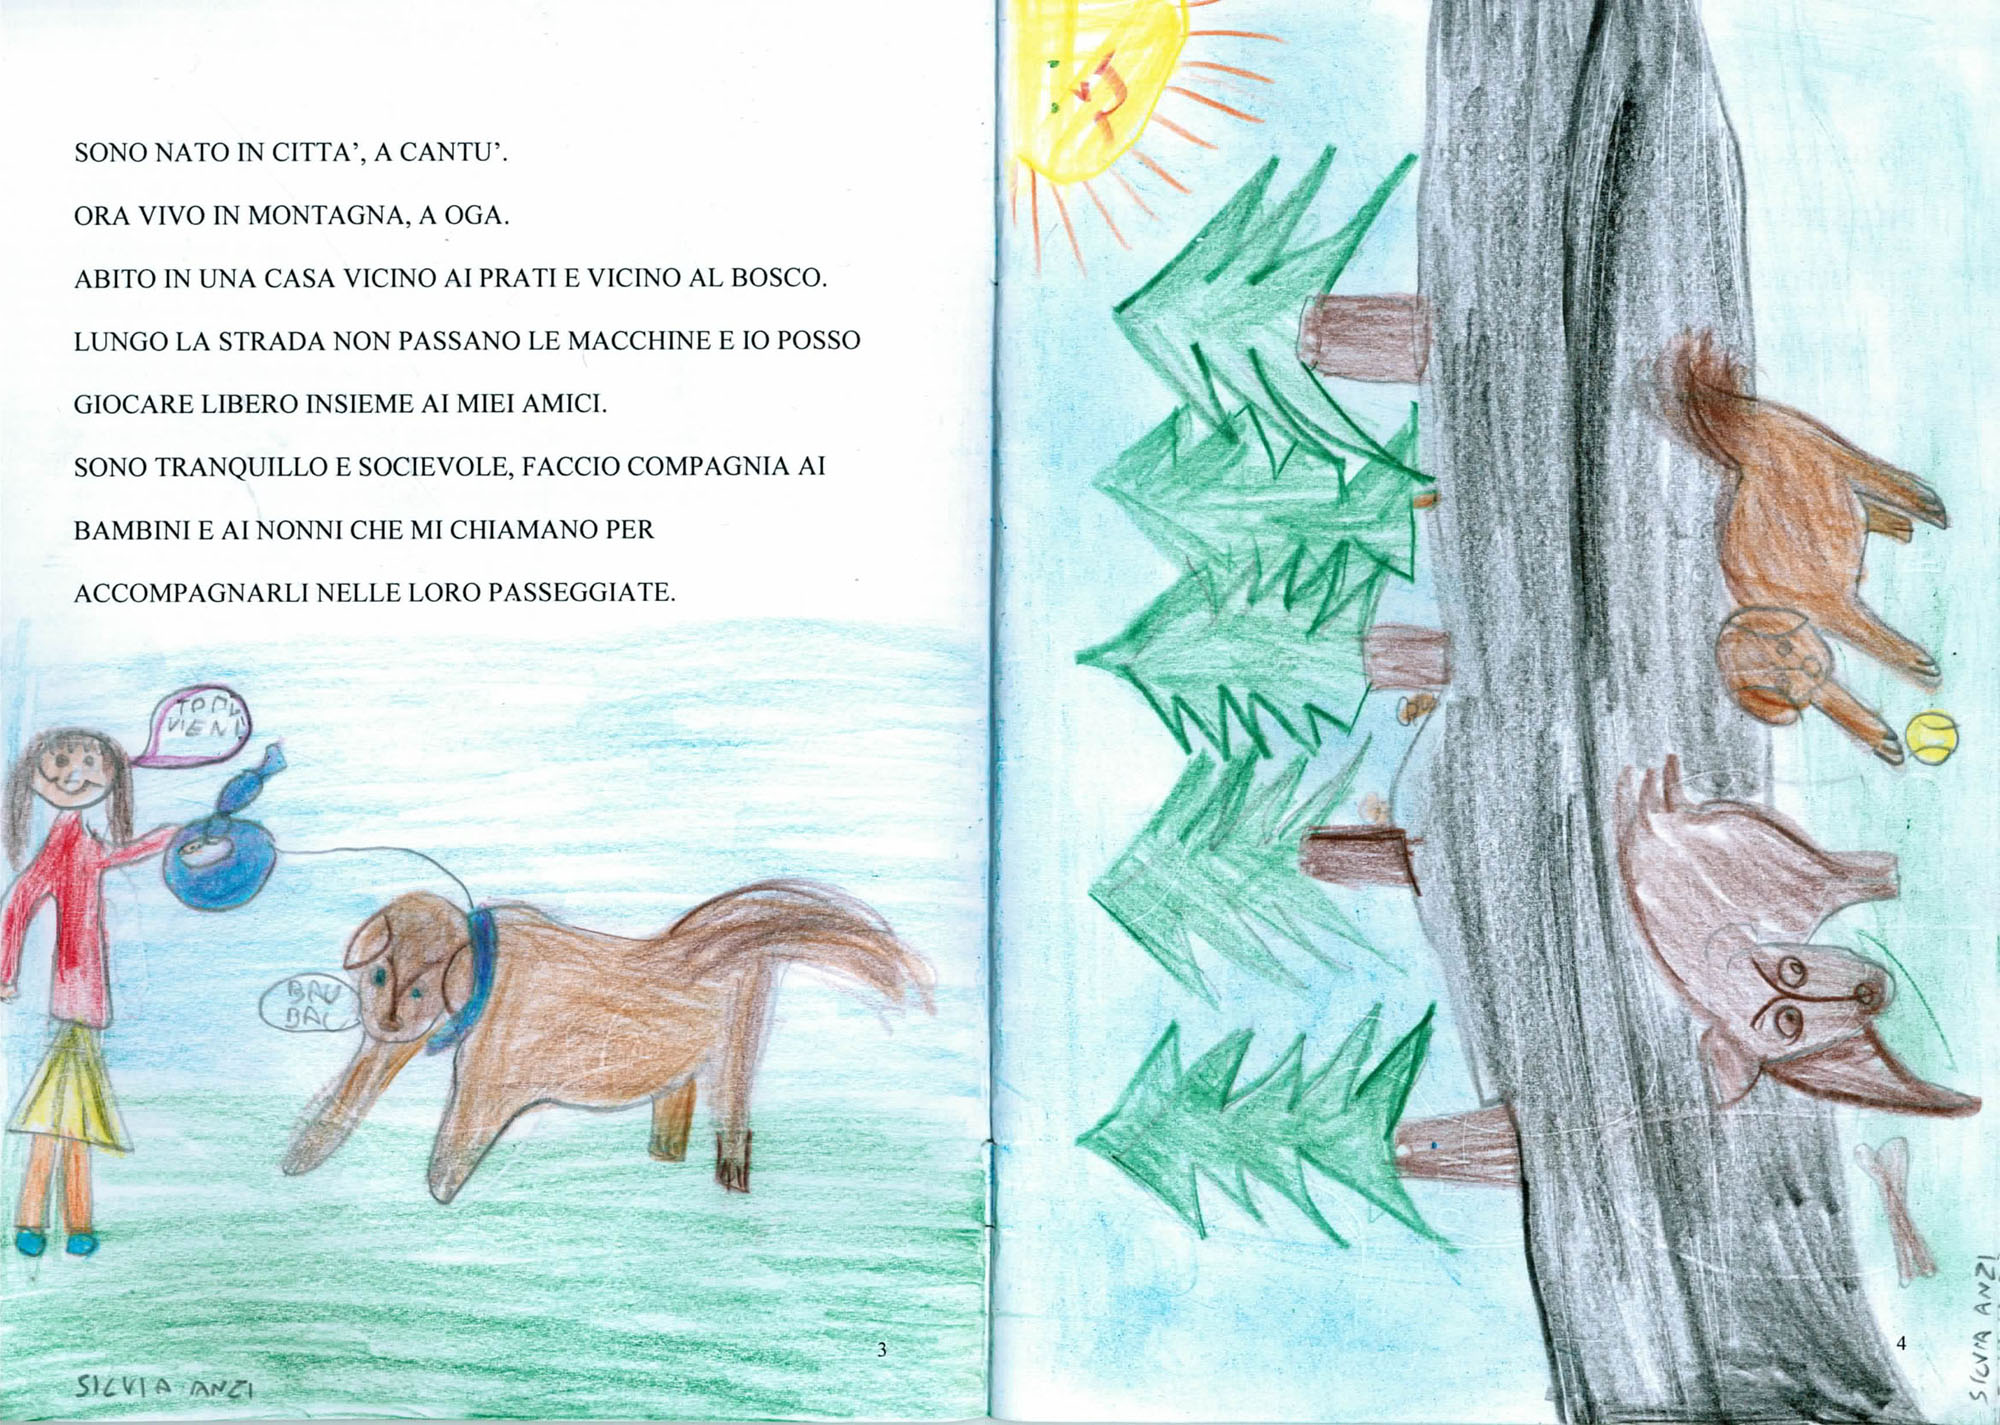 SONO NATO IN CITTA’, A CANTU’.
ORA VIVO IN MONTAGNA, A OGA.
ABITO IN UNA CASA VICINO AI PRATI E VICINO AL BOSCO.
LUNGO LA STRADA NON PASSANO LE MACCHINE E IO POSSO
GIOCARE LIBERO INSIEME AI MIEI AMICI.
SONO TRANQUILLO E SOCIEVOLE, FACCIO COMPAGNIA AI
BAMBINI E AI NONNI CHE MI CHIAMANO PER
ACCOMPAGNARLI NELLE LORO PASSEGGIATE.
VIENI
BAU
BAU
3
SILVIA ANZI
4
SILVIA ANZI